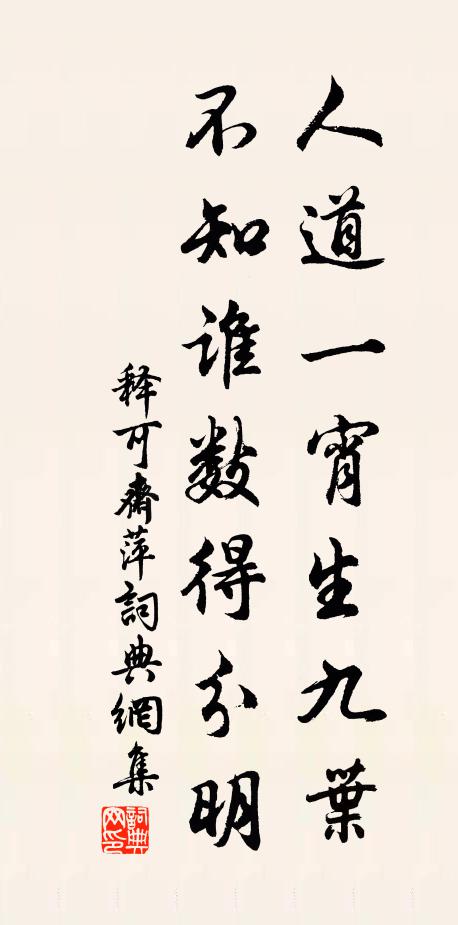 人道一宵生九葉
不知誰數得分明
释可齋萍詞典網集
詞典网印